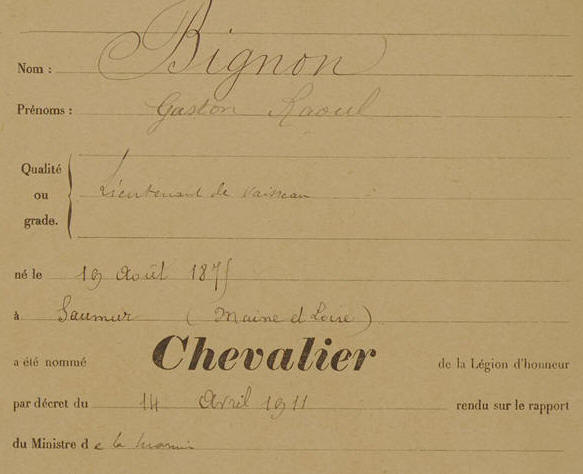 Nom : Bignon
Prénoms : Gaston Raoul
Qualité
ou
grade.
Lieutenant de vaisseau
né le 19 Août 1875
à Saumur (Maine et Loire)
a été nommé Chevalier de la Légion d'honneur
par décret du 14 Avril 1911 rendu sur le rapport
du Ministre de la Marine